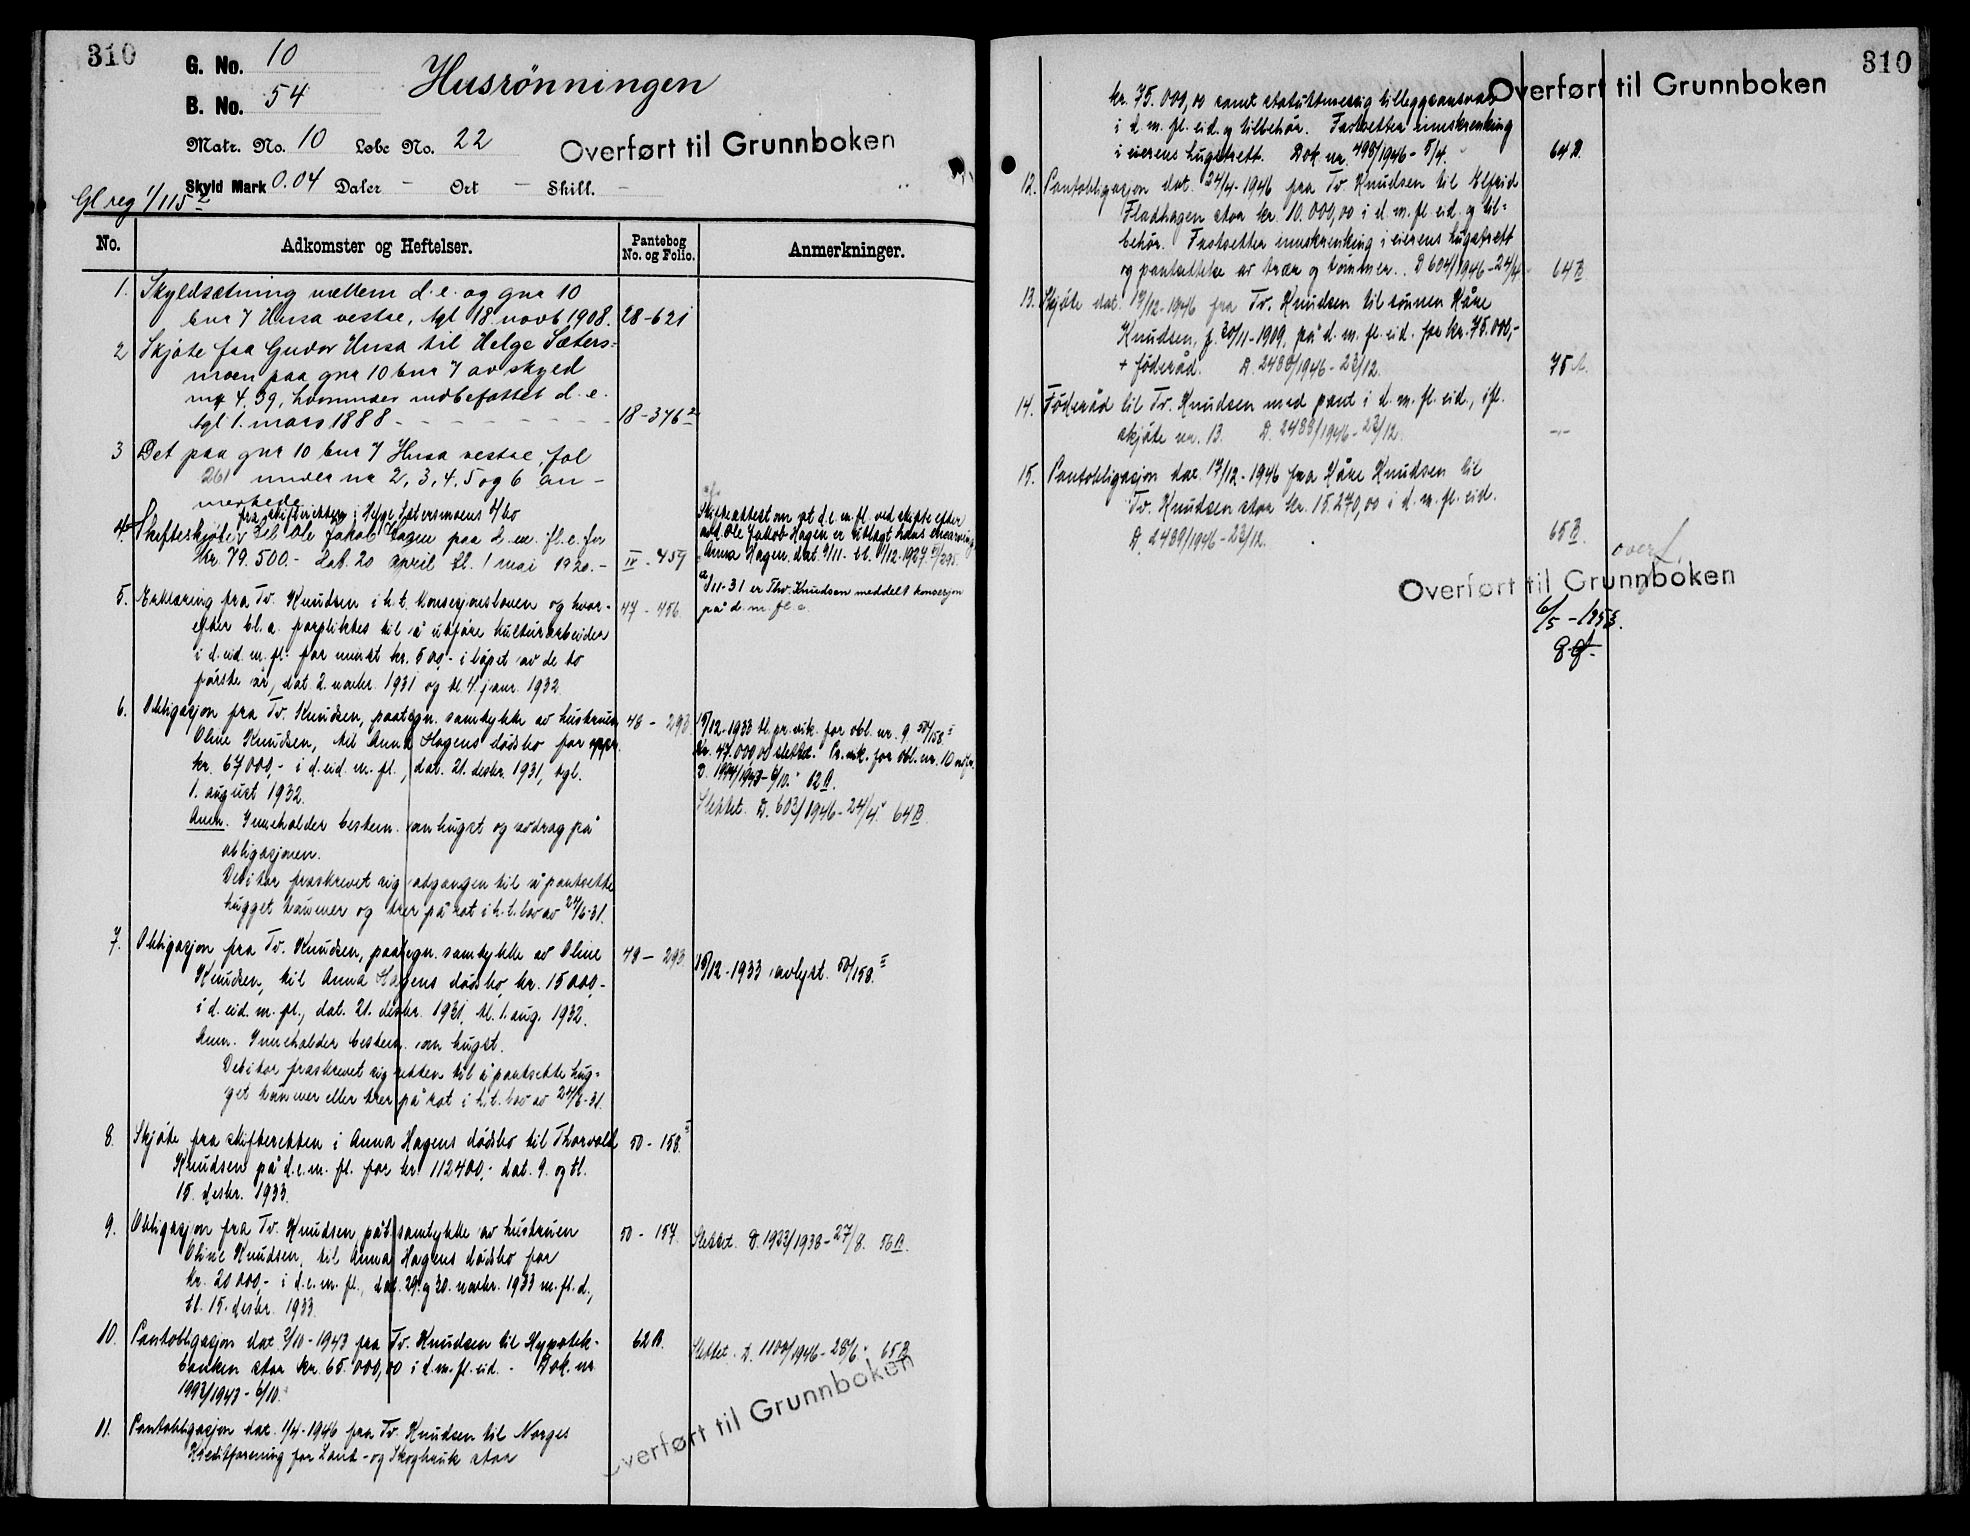 310
G. No. 10
B. No. 54
Husrønningen
Matr. No. 10 Løbe No. 22
Overført til Grunnboken
Skyld Mark 0.04 Daler - Ort - Skill. -
Gl reg 1/115
No. Adkomster og Heftelser. Pantebog No. og Folio. Anmerkninger.
1. Skyldsætning mellem d.e. og gnr 10
bnr 7 Husa vestre, tgl 18 novb 1908. 28-621
2 Skjøte fra Gudor Husa til Helge Sæters-
moen paa gnr 10 bnr 7 av skyld
mk 4,39, hvorunder indbefattet d.e.
tgl 1. mars 1888 - 18-376
3 Det paa gnr 10 bnr 7 Husa vestre, fol
261 under nr 2, 3, 4, 5 og 6 an-
merkede
fra skifteretten i Helge Sætersmoens dbo
4. Skifteskjøte til Ole Jakob Hagen paa d.e. m. fl. e. for
kr. 79.500.- dat. 20 april tl. 1 mai 1920.- IV - 459
Skifteattest om at d.e.m.fl. ved skifte efter
avd. Ole Jakob Hagen er utlagt hans enearving
Anna Hagen dat. 9/11- tl. 1/12-1927
5. Erklæring fra Tv. Knudsen i h.t. konsesjonsloven og hvor-
efter bl.a. forpliktes til å utføre kulturarbeider
i d. eid. m. fl. for minst kr. 500,- i løpet av de to
første år, dat 2. novbr. 1931 og tl 4. janr. 1932.
47 - 456.
2/11-31 er Thv. Knudsen meddelt konsesjon
på d. m. fl. e.
6. Obligasjon fra Tv. Knudsen, paategn. samtykke av hustruen
Oline Knudsen, til Anna Hagens dødsbo for oppr.
kr. 67000,- i d. eid. m. fl., dat. 21. desbr. 1931, tgl.
1. august 1932.
Anm. Inneholder bestem. om hugst og avdrag på
obligasjonen.
Debitor fraskrevet sig adgangen til å pantsette
hugget tømmer og trær på rot i h.t. lov av 24/6-31.
48 - 293
15/12-1933 tl. pr. vik. for obl. nr. 9. 50/158.
Kr. 47.000,00 slettet. Pr. vik. for obl. nr. 10
D. 1994/1943-6/10. 62 B.
Slettet. D. 603/1946-24/4. 64 B.
7. Obligasjon fra Tv. Knudsen, paategn. samtykke av Oline
Knudsen, til Anna Hagens dødsbo, kr. 15000,-
i d. eid. m. fl., dat. 21. desbr. 1931, tl. 1. aug. 1932.
Anm. Inneholder bestem. om hugst.
Debitor fraskrevet sig retten til å pantsette hug-
get tømmer eller trær på rot i h.t. lov av 24/6-31.
48 - 293
15/12-1933 avlyst. 50/158.
8. Skjøte fra skifteretten i Anna Hagens dødsbo til Thorvald
Knudsen på d.e.m. fl. for kr 112400,- dat. 9. og tl.
15. desbr. 1933.
50 - 158.
9. Obligasjon fra Tv. Knudsen påt. samtykke av hustruen
Oline Knudsen, til Anna Hagens dødsbo for
kr. 20000,- i d.e.m. fl., dat. 29. og 30. novbr. 1933 m. fl. d.,
tl. 15. desbr. 1933.
50 - 157.
Slettet. D. 1923/1938-27/8. 56 B.
10. Pantobligasjon dat 2/10-1943 fra Tv. Knudsen til Hypotek-
banken stor kr. 65.000,00 i d.m. fl. eid. - Dok. nr.
1993/1943-6/10.
62 B.
Slettet. D. 1100/1946-28/6. 65 B
11. Pantobligasjon dat. 1/4-1946 fra Tv. Knudsen til Norges
Kreditforening for Land- og Skogbruk stor
Overført til Grunnboken
310
Overført til Grunnboken
kr. 75.000,00 samt statuttmessig tilleggsansvar
i d. m. fl. eid. og tilbehør. Fastsetter innskrenking
i eierens hugstrett. Dok nr. 498/1946-5/4. 64 B.
12. Pantobligasjon dat. 24/4-1946 fra Tv. Knudsen til Elfrid
Fladhagen stor kr. 10.000,00 i d.m. fl. eid. og til-
behør. Fastsetter innskrenking i eierens hugstrett
og pantsettelse av trær og tømmer. D 604/1946-24/4 64 B
13. Skjøte dat. 17/12-1946 fra Tv. Knudsen til sønnen Kåre
Knudsen, f. 20/11-1909, på d. m. fl. eid. for kr. 75.000,-
+ føderåd. D. 2488/1946-23/12.
14. Føderåd til Tv. Knudsen med pant i d. m. fl. eid., ifl.
skjøte nr. 13. D. 2488/1946-23/12. -"-
15. Pantobligasjon dat. 17/12-1946 fra Kåre Knudsen til
Tv. Knudsen stor kr. 15.270,00 i d. m. fl. eid.
D. 2489/1946-23/12. 65 B.
overf.
Overført til Grunnboken
6/5-1953.